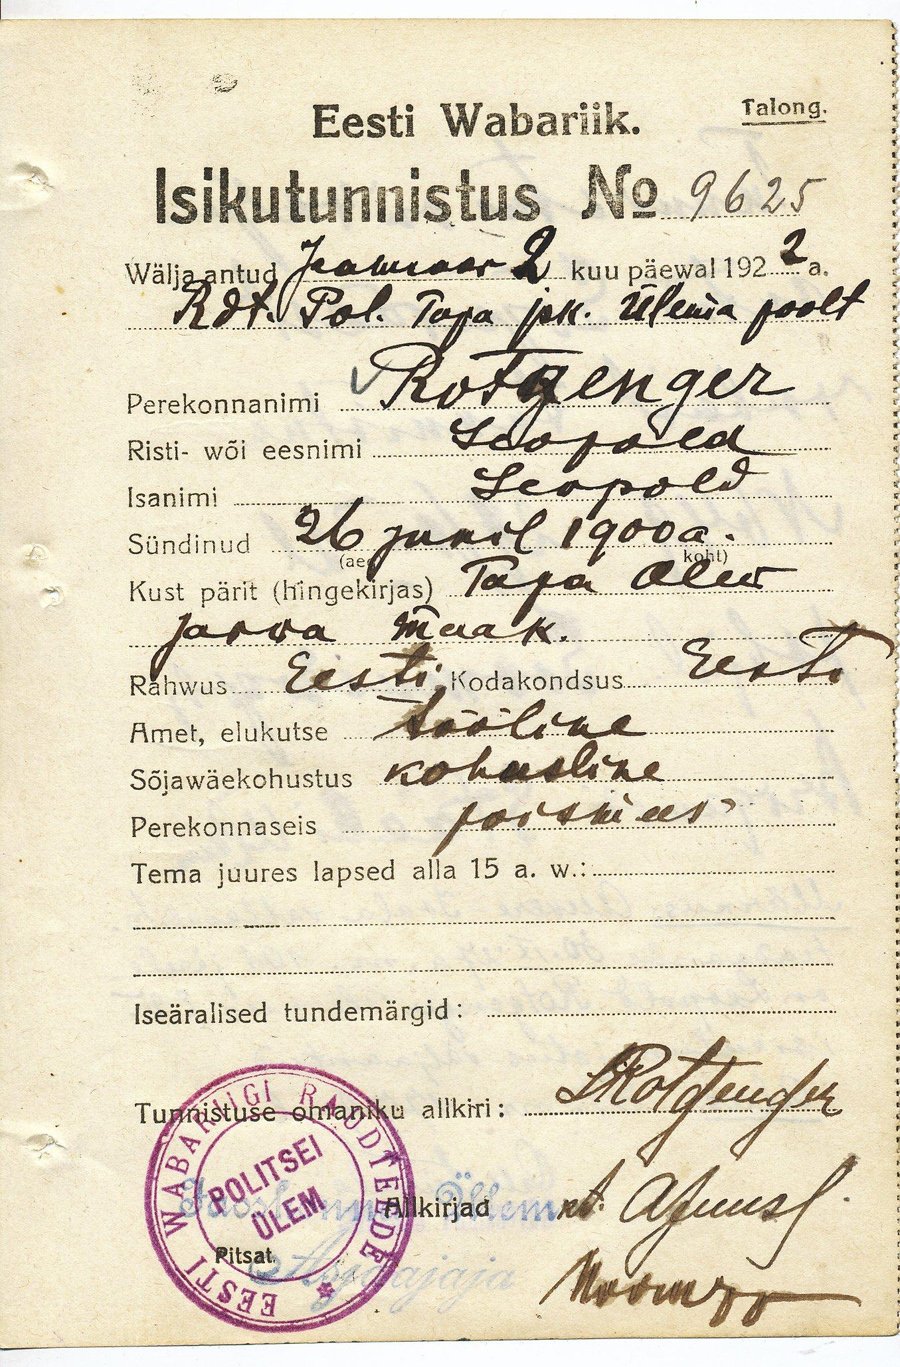 Talong.
Eesti Wabariik.
Isikutunnistus No 9625
Wälja antud Jaanuar 2 kuu päewal 1922 a.
Rdt. Pol. Tapa jsk. Ülema poolt
Perekonnanimi Rotzenger
Risti- wõi eesnimi Leopold
Isanimi Leopold
Sündinud 26 juunil 1900 a.
(aeg koht)
Kust pärit (hingekirjas) Tapa Alew
Jarwa Maak.
Rahwus Eesti Kodakondsus Eesti
Amet, elukutse tööline
Sõjawäekohustus kohusline
Perekonnaseis poismees
Tema juures lapsed alla 15 a. w.:
Iseäralised tundemärgid:
Tunnistuse omaniku allkiri: LRotzenger
EESTI WABARIIGI RAUDTEEDE
POLITSEI
ÜLEM
Jaoskonna Ülem
Allkirjad
Pitsat.
Asjaajaja